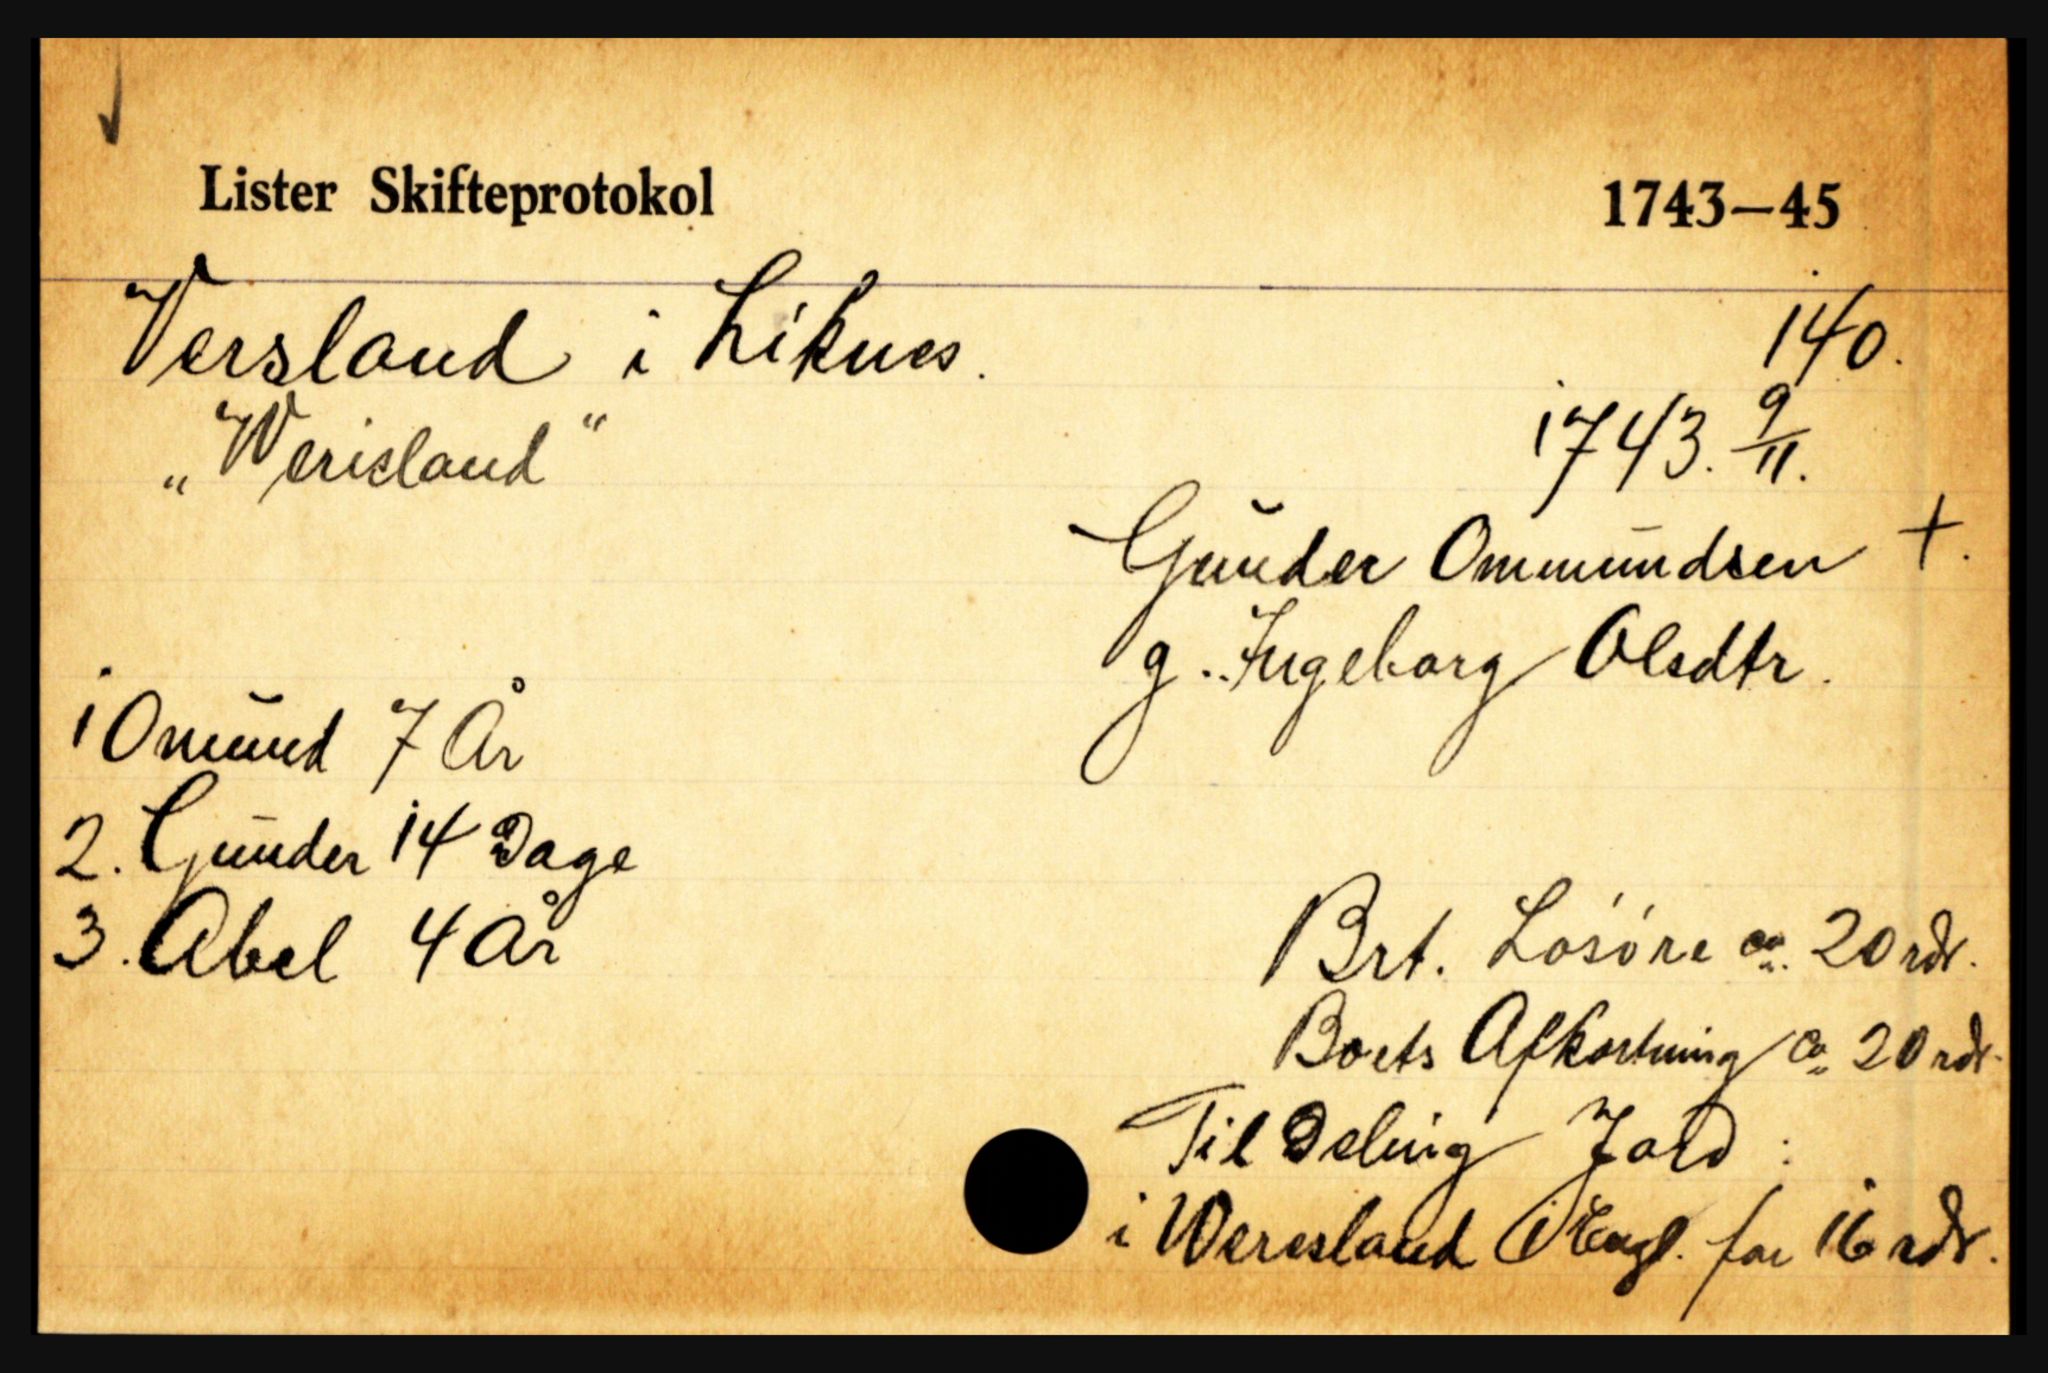 Lister Skifteprotokol 1743–45
Versland i Liknes. 140.
„Werisland“ 1743. 9/11.
Gŭnder Ommūndsen +.
g. Ingeborg Olsdtr.
1 Omŭnd 7 År
2. Gūnder 14 Dage
3. Abel 4 År
Brt. Losöre ca. 20 rdr.
Boets Afkortning ca 20 rdr.
Til Deling Jord :
i Weresland 1 Engl. for 16 rdr.